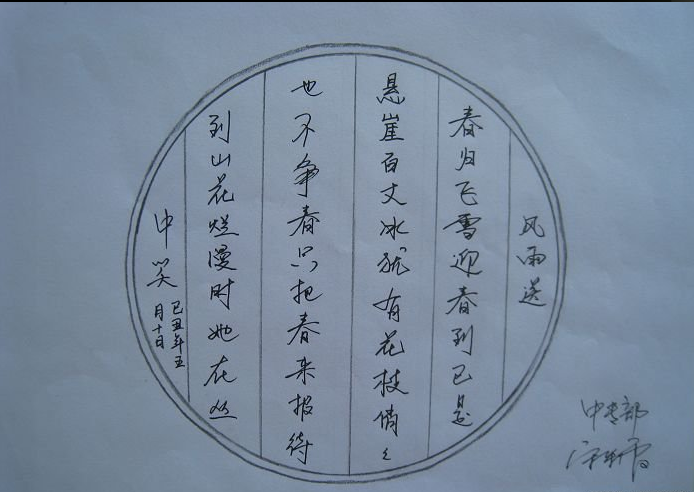 风雨送
春归飞雪迎春到已是
悬崖百丈冰犹有花枝俏々
也不争春只把春来报待
到山花烂漫时她在丛
中笑
己丑年五
月十日
中专部